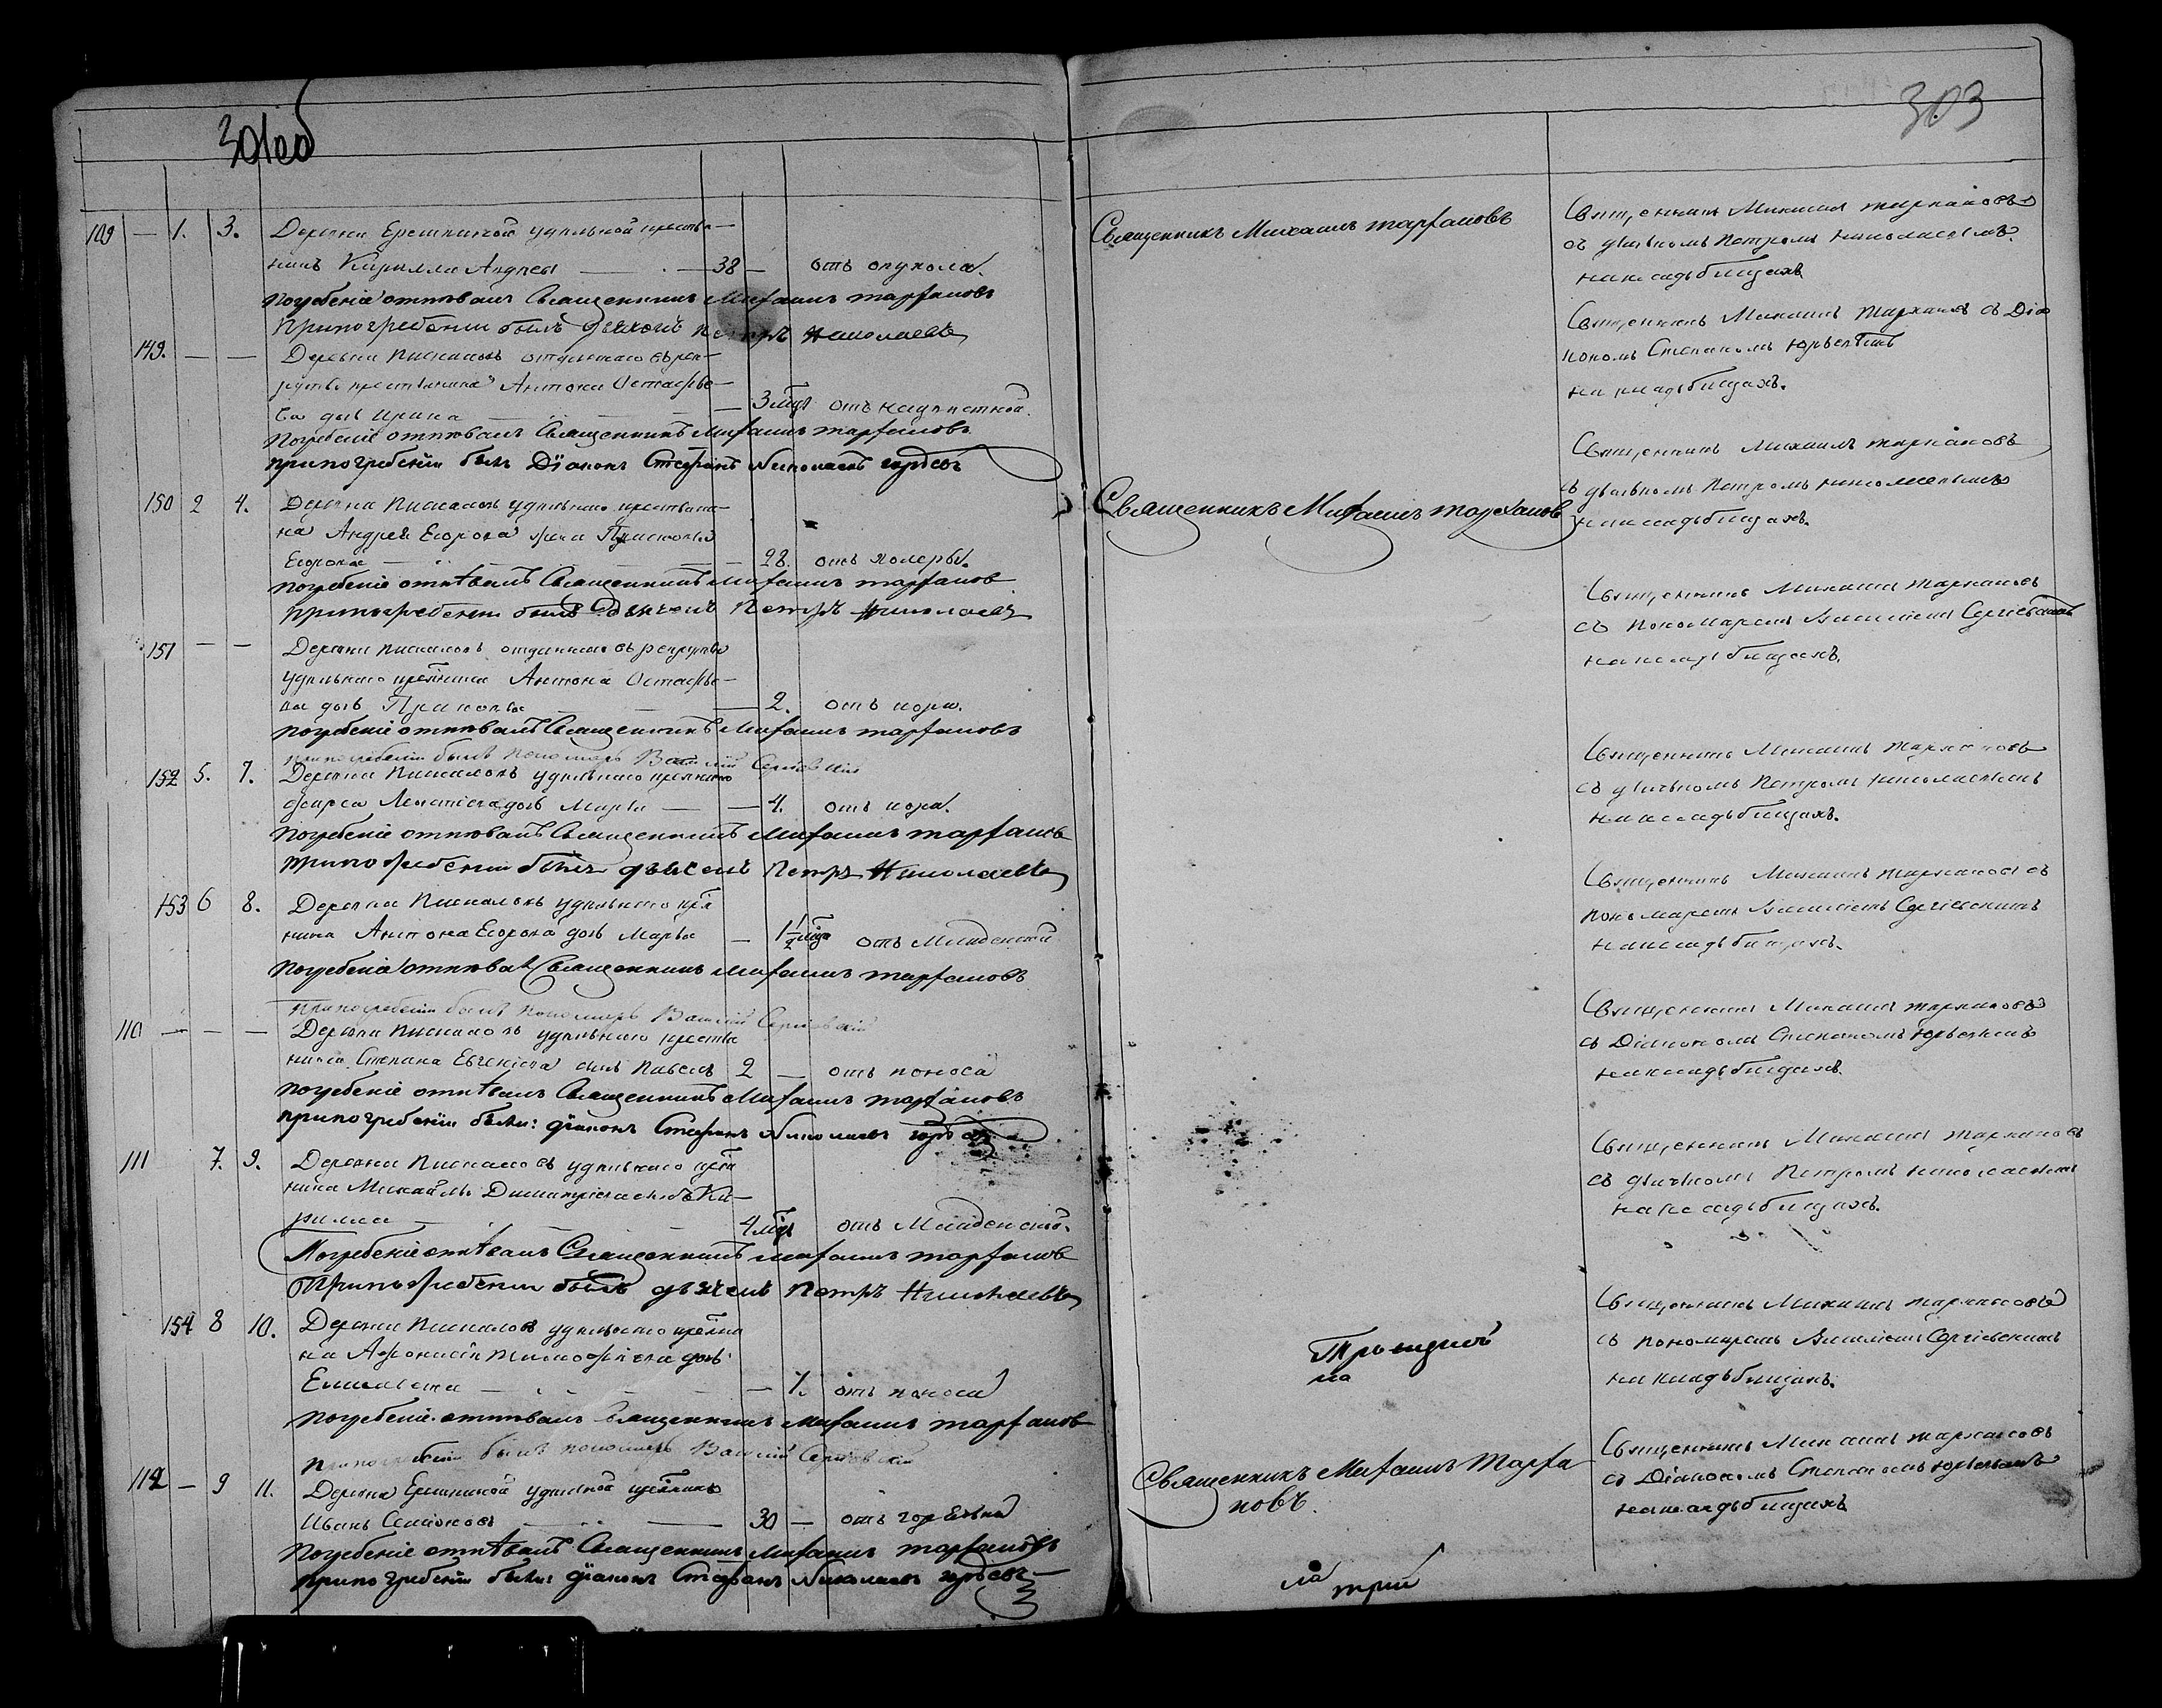 301 об
303
109 — 1. 3. Деревни Ерешкиной удѣльной крестья—
нинъ Кирилла Андреевъ — 38 — отъ опухоли.
погребенiе отпѣвалъ Священникъ Михаилъ Тархановъ
При погребенiи былъ дьячекъ Петръ Николаевъ
149. — — Деревни Пискаловъ отданнаго въ рек—
рутъ крестьянина Антона Остафье—
ва дочь Ирина — 3 мѣс. отъ
Погребенiе отпѣвалъ Священникъ Михаилъ Тархановъ
при погребенiи былъ Дiаконъ Стефанъ Николаевъ Юрьевъ
150 2 4. Деревни Пискаловъ удѣльнаго крестьяни—
на Андрея Егорова жена Прасковья
Егорова — 28. отъ холеры.
погребенiе отпѣвалъ Священникъ Михаилъ Тарханов
При погребенiи былъ дьячекъ Петръ Николаевъ
151 — — Деревни Пискаловъ отданнаго въ рекруты
удѣльнаго крестьянина Антона Остафье—
ва дочь — 2. отъ кори.
погребенiе отпѣвалъ Священникъ Михаилъ Тархановъ
При погребенiи былъ пономарь Василiй Сергiевскiй
152 5. 7. Деревни Пискаловъ удѣльнаго крестьянина
Леонтiева дочь Марья — 4. отъ кори.
погребенiе отпѣвалъ Священникъ Михаилъ Тарханов
При погребенiи былъ дьячекъ Петръ Николаевъ
153 6 8. Деревни Пискаловъ удѣльнаго крестья
нина Антона Егорова дочь Марья — 1½ мѣс. отъ младенской
погребенiе отпѣвалъ Священникъ Михаилъ Тархановъ
При погребенiи былъ пономарь Василiй Сергiевскiй
110 — — — Деревни Пискаловъ удѣльнаго крестья
нина Степана Евгенiева сынъ Павелъ 2 — отъ поноса
погребенiе отпѣвалъ Священникъ Михаилъ Тархановъ
при погребенiи былъ: дiаконъ Стефанъ Николаевъ Юрьевъ
111 7. 9. Деревни Пискаловъ удѣльнаго крестья
нина Михайлы Димитрiева сынъ Ки—
рилла — 4 мѣс. отъ младенской.
Погребенiе отпѣвалъ Священникъ Михаилъ Тарханов
При погребенiи былъ дьячекъ Петръ Николаевъ
154 8 10. Деревни Пискаловъ удѣльнаго крестьяни
на Афонасiя Тимофѣева дочь
Елисавета — 1. отъ поноса
погребенiе отпѣвалъ Священникъ Михаилъ Тарханов
При погребенiи былъ пономарь Василiй Сергiевскiй
112 — 9 11. Деревни Ерешкиной удѣльной крестьянинъ
Иванъ Семеновъ — 30 — отъ горячки
Погребенiе отпѣвалъ Священникъ Михаилъ Тархановъ
при погребенiи былъ: дiаконъ Стефанъ Николаевъ Юрьевъ
Священникъ Михаилъ Тархановъ
Священникъ Михаилъ Тарханов
Троицкой
Священникъ Михаилъ Тарха
новъ.
Священникъ Михаилъ Тархановъ
съ дьячкомъ Петромъ Николаевымъ
на кладбищахъ
Священникъ Михаилъ Тархановъ съ Дiа
кономъ Степаномъ Юрьевымъ
на кладбищахъ.
Священникъ Михаилъ Тархановъ
съ дьячкомъ Петромъ Николаевымъ
на кладбищахъ.
Священникъ Михаилъ Тархановъ
съ пономаремъ Василiемъ Сергiевскимъ
на кладбищахъ.
Священникъ Михаилъ Тархановъ
съ дьячкомъ Петромъ Николаевымъ
на кладбищахъ.
Священникъ Михаилъ Тархановъ съ
пономаремъ Василiемъ Сергiевскимъ
на кладбищахъ.
Священникъ Михаилъ Тархановъ
съ Дiакономъ Степаномъ Юрьевымъ
на кладбищахъ.
Священникъ Михаилъ Тархановъ
съ дьячкомъ Петромъ Николаевымъ
на кладбищахъ.
Священникъ Михаилъ Тархановъ
съ пономаремъ Василiемъ Сергiевскимъ
на кладбищахъ.
Священникъ Михаилъ Тархановъ
съ Дiакономъ Степаномъ Юрьевымъ
на кладбищахъ